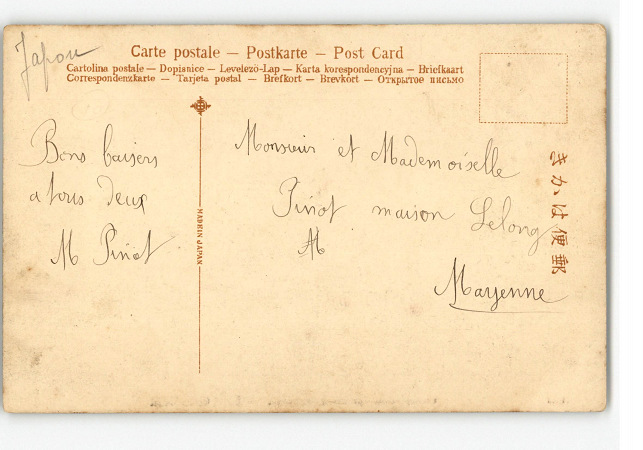 Japon
Carte postale — Postkarte — Post Card
Cartolina postale — Dopisnice — Levelező-Lap — Karta korespondencyjna — Briefkaart
Correspondenzkarte — Tarjeta postal — Brefkort — Brevkort — Открытое письмо
Bons baisers
a tous deux
M Pinot
MADE IN JAPAN
Monsieur et Mademoiselle
Pinot maison Lelong
A
Mayenne
きかは便郵